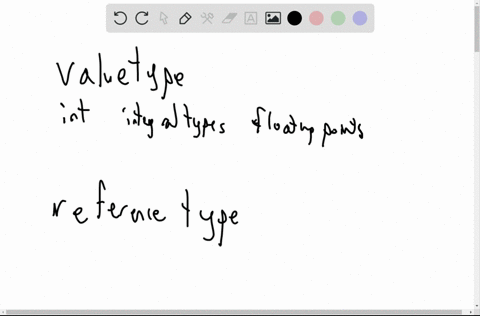 value type
int integral types floating points
reference type